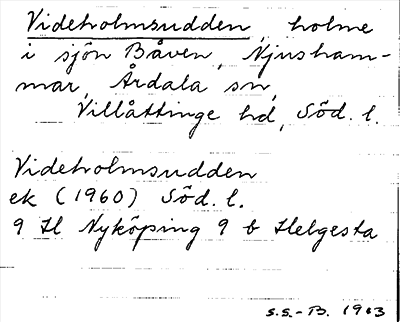 Videholmsudden, holme
i sjön Båven, Njusham-
mar, Årdala sn,
Villåttinge hd, Söd. l.
Videholmsudden
ek (1960) Söd. l.
9 H Nyköping 9 b Helgesta
S.S.-B. 1963